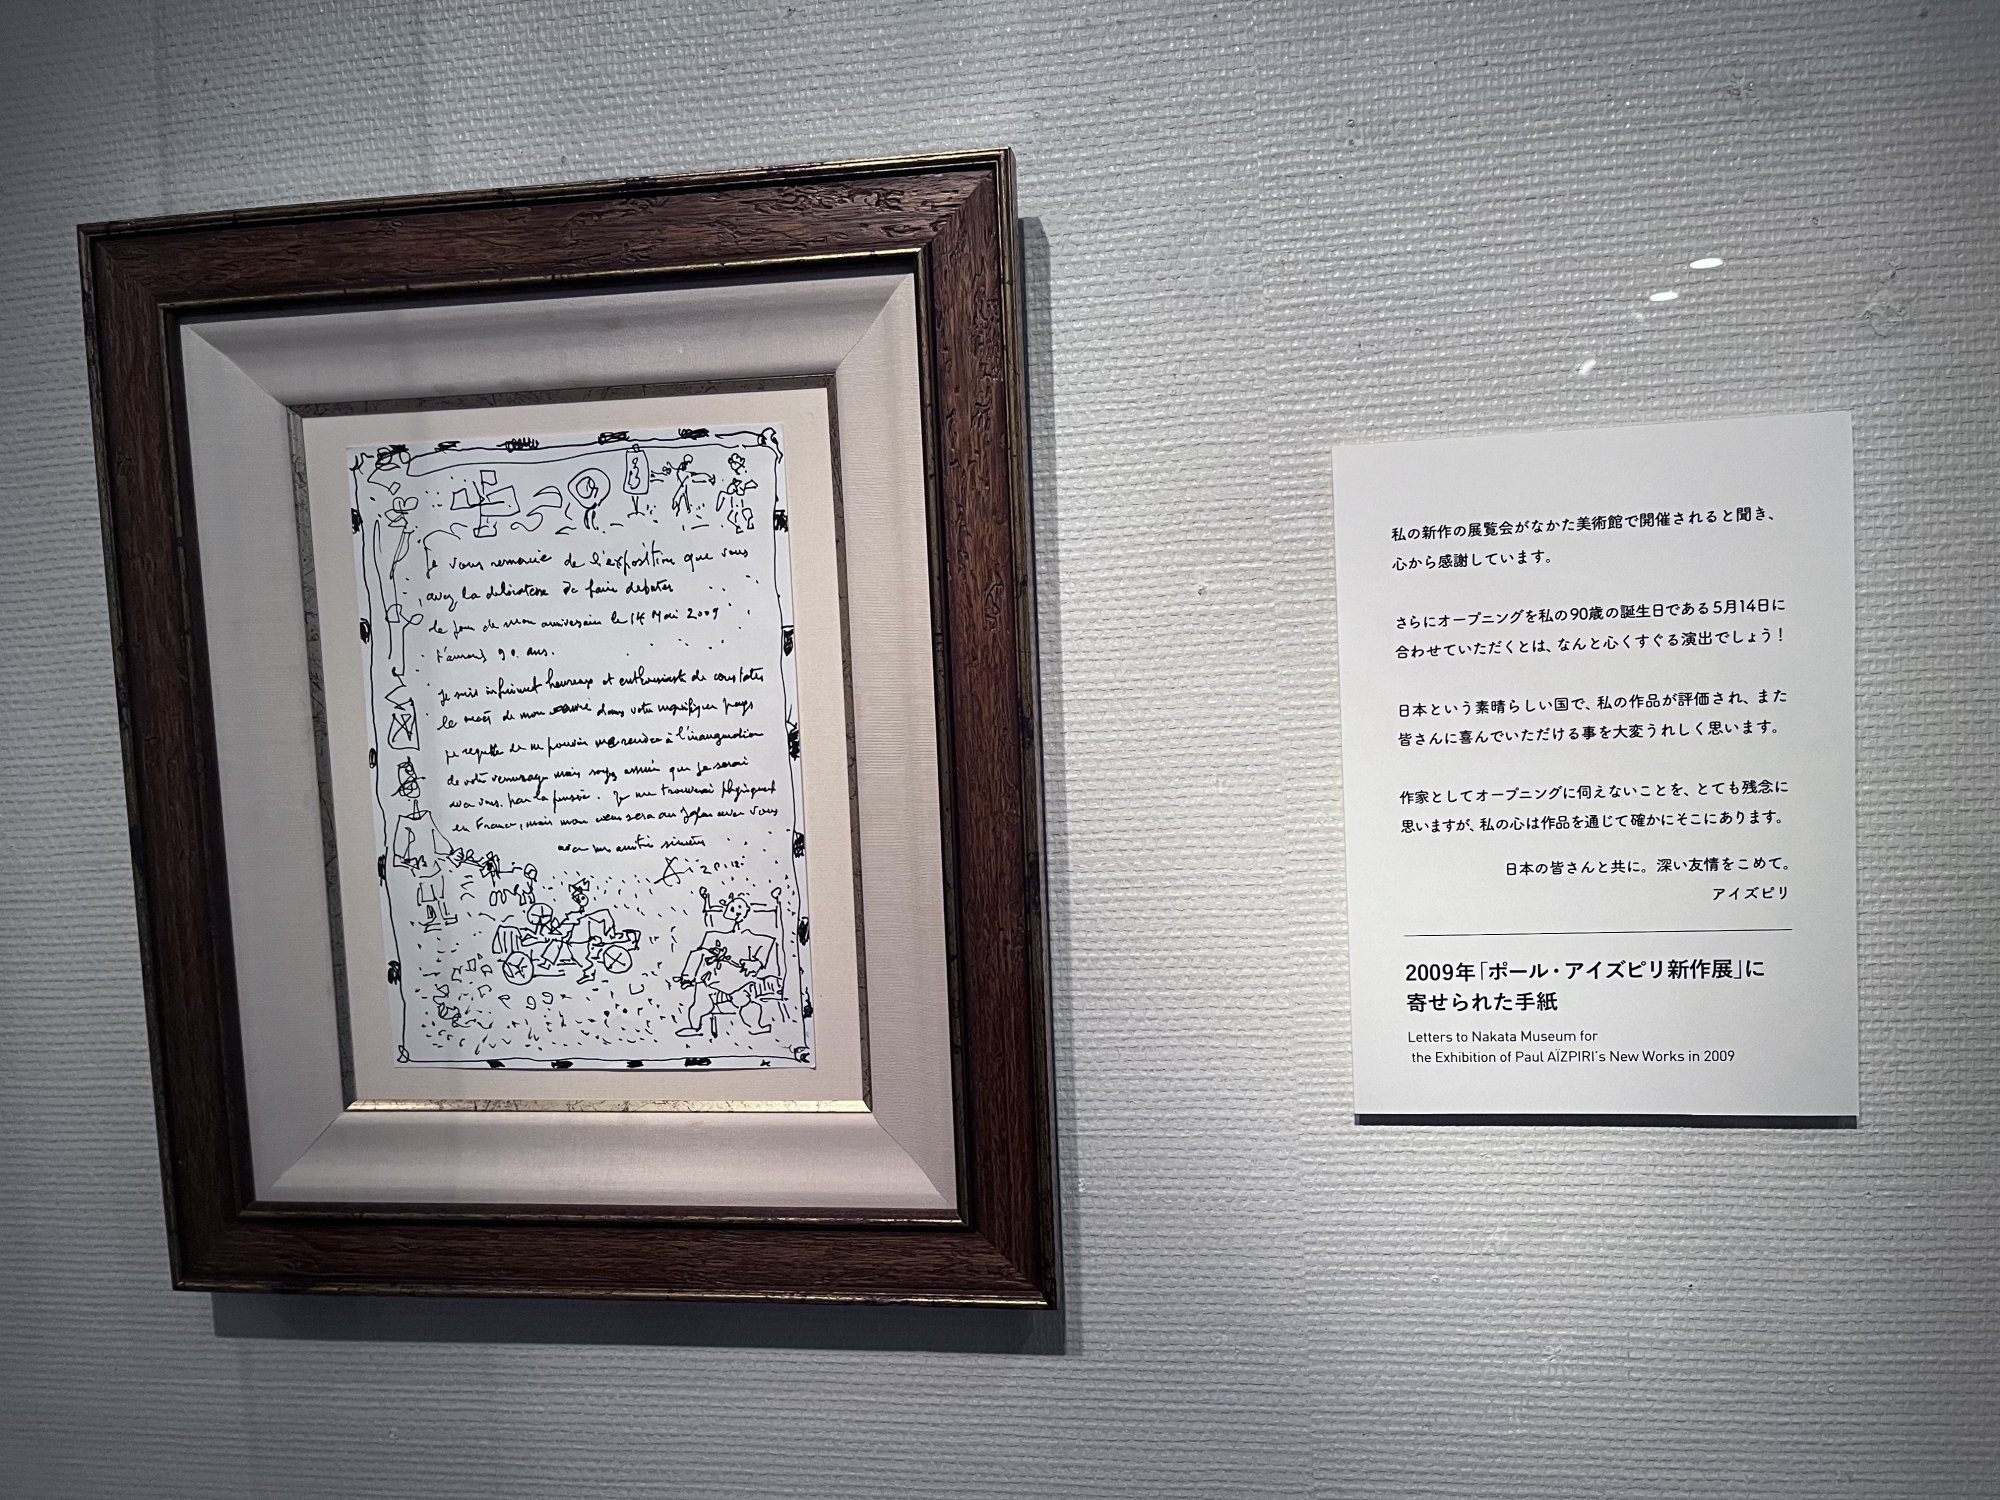 je vous remercie de l'exposition que vous
avez la délicatesse de faire debuter
le jour de mon anniversaire le 14 Mai 2009
J'aurais 90 ans.
je suis infiniment heureux et enthousiaste de constater
le succès de mon œuvre dans votre magnifique pays
je regrette de ne pouvoir me rendre à l'inauguration
de votre vernissage mais soyez assuré que je serai
avec vous par la pensée. Je me trouverai physiquement
en France, mais mon cœur sera au Japon avec vous
avec mes amitiés sincères
私の新作の展覧会がなかた美術館で開催されると聞き、
心から感謝しています。
さらにオープニングを私の90歳の誕生日である5月14日に
合わせていただくとは、なんと心くすぐる演出でしょう！
日本という素晴らしい国で、私の作品が評価され、また
皆さんに喜んでいただける事を大変うれしく思います。
作家としてオープニングに伺えないことを、とても残念に
思いますが、私の心は作品を通じて確かにそこにあります。
日本の皆さんと共に。深い友情をこめて。
アイズピリ
2009年「ポール・アイズピリ新作展」に
寄せられた手紙
Letters to Nakata Museum for
the Exhibition of Paul AÏZPIRI's New Works in 2009